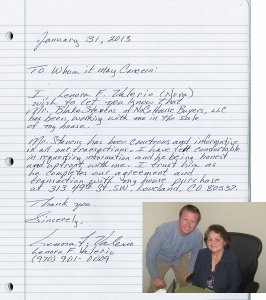 January 31, 2013
To Whom it may Concern:
I, Lenora F. Valerio (Nora)
wish to let you know that
Mr. Blake Stevens of NoCo House Buyers, LLC
has been working with me in the sale
of my house.
Mr. Stevens has been courteous and informative
in all our transactions. I have felt comfortable
in requesting information and he being honest
and upfront with me. I trust him as
he completes our agreement and
transaction with my house purchase
at 313 49th St. SW. Loveland, CO 80537.
Thank you
Sincerely,
Lenora F. Valerio
Lenora F. Valerio
(970) 901-0009